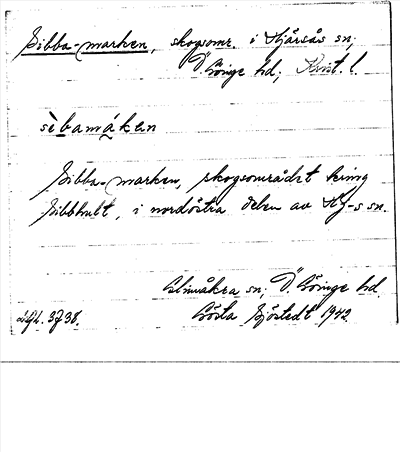 Sibba-marken, skogsomr. i Hjärsås sn;
Ö. Göinge hd; Krist. l.
sèbamáken
Sibba-marken, skogsområdet kring
Sibbhult, i nordöstra delen av Hj-s sn.
Glimåkra sn; Ö. Göinge hd.
Gösta Sjöstedt 1942
3738.